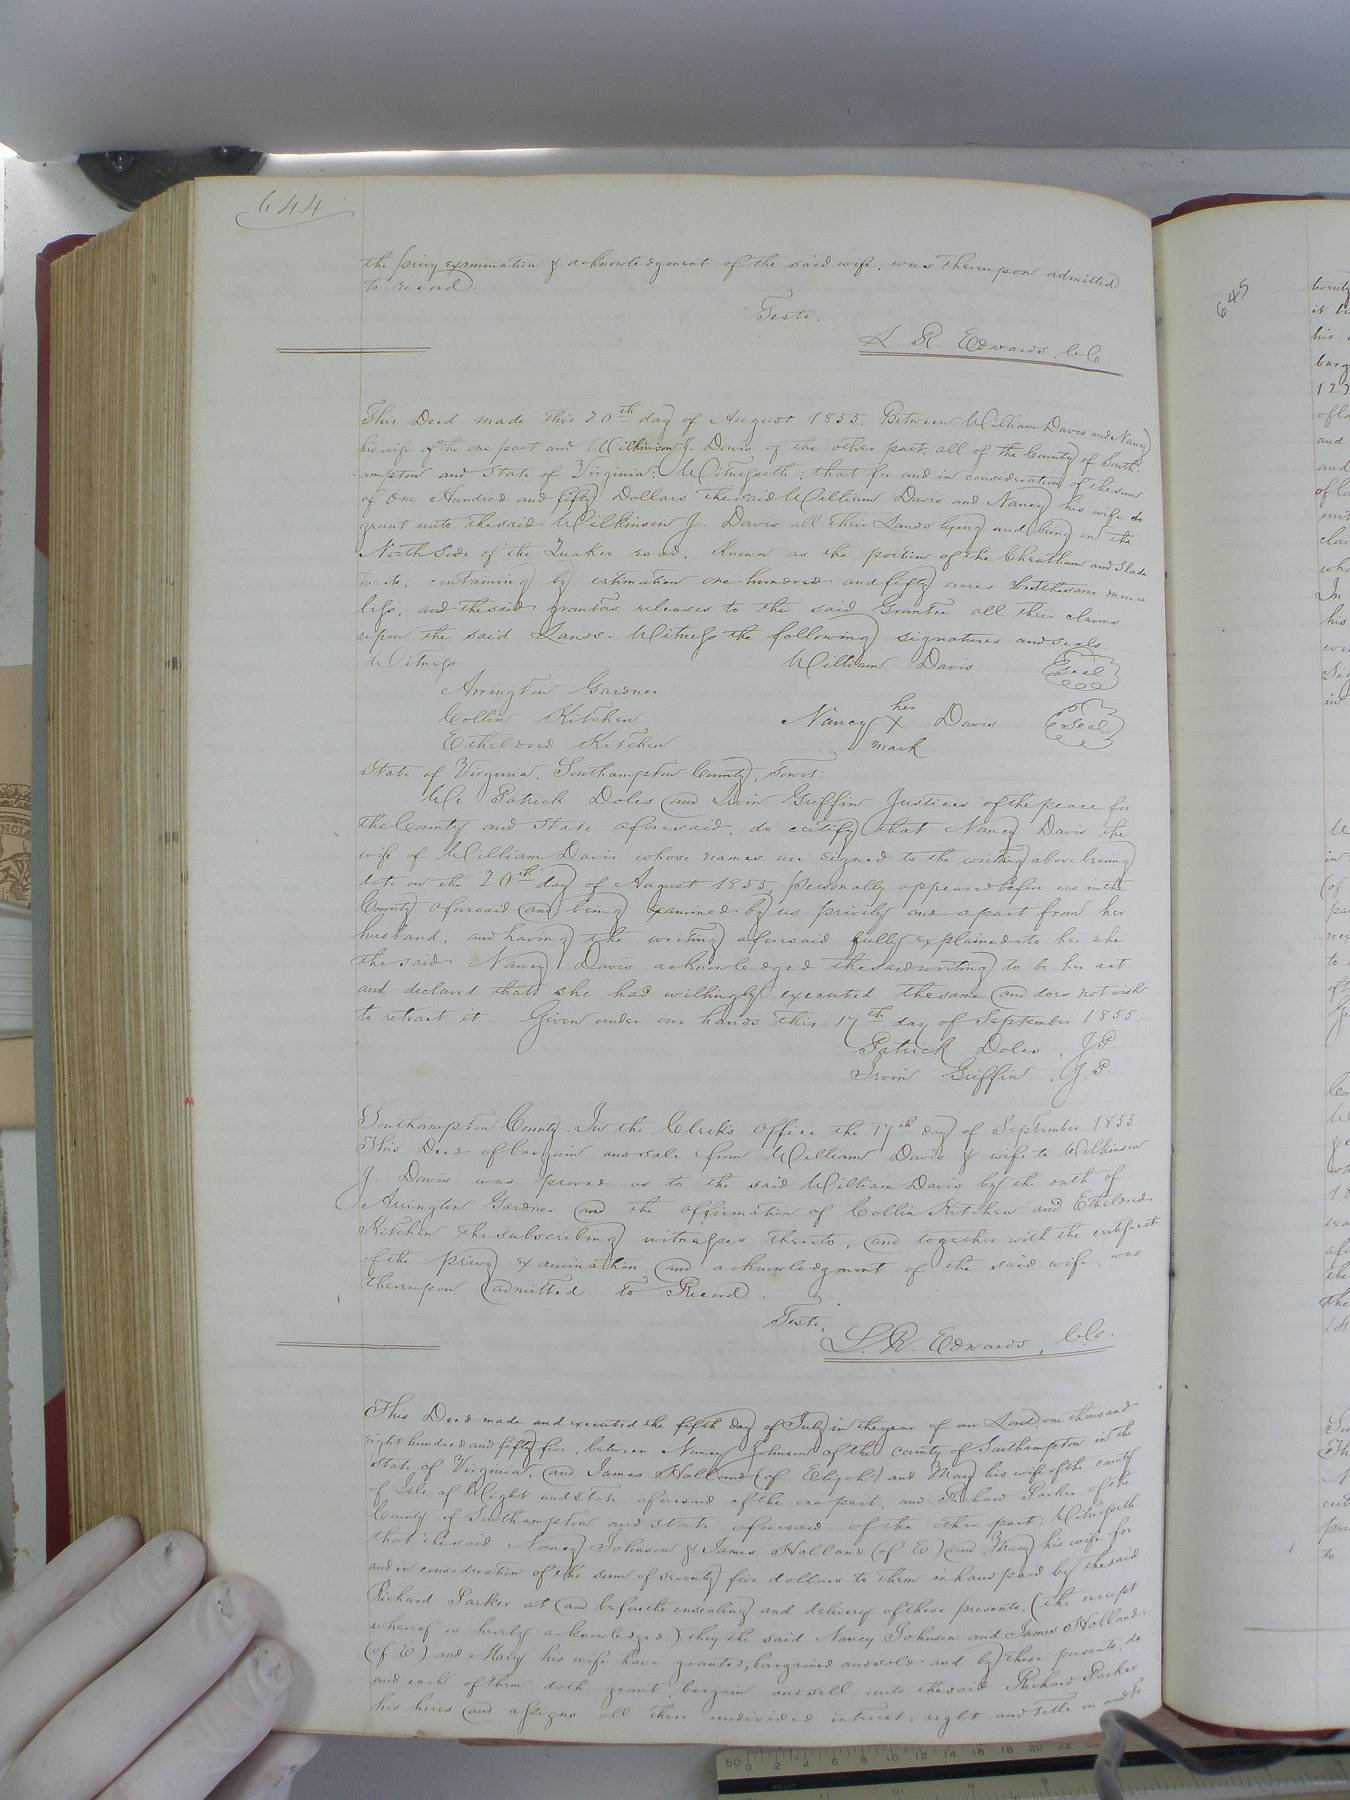 644
the privy examination & acknowledgment of the said wife, was thereupon admitted
to record.
Teste,
L. R. Edwards, C.C.
This Deed made this 20th day of August 1855. Between William Davis and Nancy
his wife of the one part and Wilkinson J. Davis of the other part, all of the County of South-
ampton and State of Virginia: Witnesseth; that for and in consideration of the sum
of One Hundred and fifty Dollars the said William Davis and Nancy his wife do
grant unto the said Wilkinson J. Davis all their Lands lying and being on the
North Side of the Quaker road, Known as the portion of the Cheatham and Slade
tracts, containing by estimation one hundred and fifty acres be the same more or
less, and the said grantors releases to the said Grantee all their claims
upon the said Lands. Witness the following signatures and seals
Witness William Davis Seal
Arrington Gardner
Collin Kitchen Nancy her X mark Davis Seal
Etheldred Kitchen
State of Virginia, Southampton County, Towit:
We Patrick Doles and Irvin Griffin Justices of the peace for
the County and State aforesaid, do certify that Nancy Davis the
wife of William Davis whose names are signed to the writing above bearing
date on the 20th day of August 1855, personally appeared before us in the
County aforesaid and being examined by us privily and apart from her
husband, and having the writing aforesaid fully explained to her she
the said Nancy Davis acknowledged the said writing to be her act
and declared that she had willingly executed the same and does not wish
to retract it. Given under our hands this 17th day of September 1855.
Patrick Doles, J.P.
Irvin Griffin, J.P.
Southampton County. In the Clerk's Office the 17th day of September 1855.
This Deed of bargain and sale from William Davis & wife to Wilkinson
J. Davis was proved as to the said William Davis by the oath of
Arrington Gardner and the affirmation of Collin Kitchen and Etheldred
Kitchen the subscribing witnesses thereto, and together with the certificate
of the privy examination and acknowledgment of the said wife, was
thereupon admitted to Record.
Teste,
L. R. Edwards, C.C.
This Deed made and executed the fifth day of July in the year of our Lord one thousand
eight hundred and fifty five, between Nancy Johnson of the county of Southampton in the
State of Virginia, and James Holland (of Elijah) and Mary his wife of the county
of Isle of Wight and state aforesaid of the one part, and Richard Parker of the
County of Southampton and state aforesaid of the other part; Witnesseth
that the said Nancy Johnson & James Holland (of E) and Mary his wife for
and in consideration of the sum of seventy five dollars to them in hand paid by the said
Richard Parker at and before the ensealing and delivery of these presents, (the receipt
whereof is hereby acknowledged) they the said Nancy Johnson and James Holland
(of E) and Mary his wife have granted, bargained and sold and by these presents, do
and each of them doth grant, bargain and sell unto the said Richard Parker
his heirs and assigns all their undivided interest, right and title in and to
645